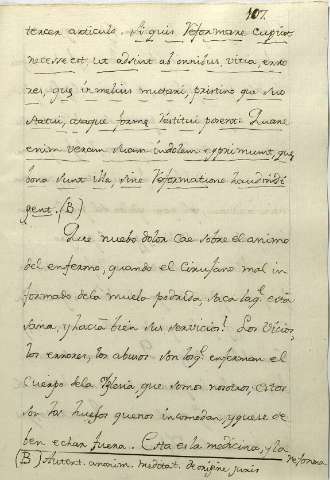 107.
tercer articulo. Si quis Reformare cupiat
necesse est, ut adsint ab omnibus, vitia, erro
res, quæ in melius mutari, pristino que suo
statui, atque formæ restitui poterit. Quare
enim veram suam indolem exprimunt, quæ
bona sunt illa, sine Reformatione haud indi
gent. (B)
Que nuebo dolor cae sobre el animo
del enfermo, quando el Cirujano mal in
formado de la muela podrida, saca la qᵉ está
sana, y hacia bien sus servicios! Los Vicios,
los errores, los abusos son los qᵉ enferman el
Cuerpo de la Iglesia que somos nosotros, estos
son los huesos que nos incomodan, y que se de
ben echar fuera. Esta es la medicina, y la
Reforma
(B) Autent. anonim. meditat. de origine juris